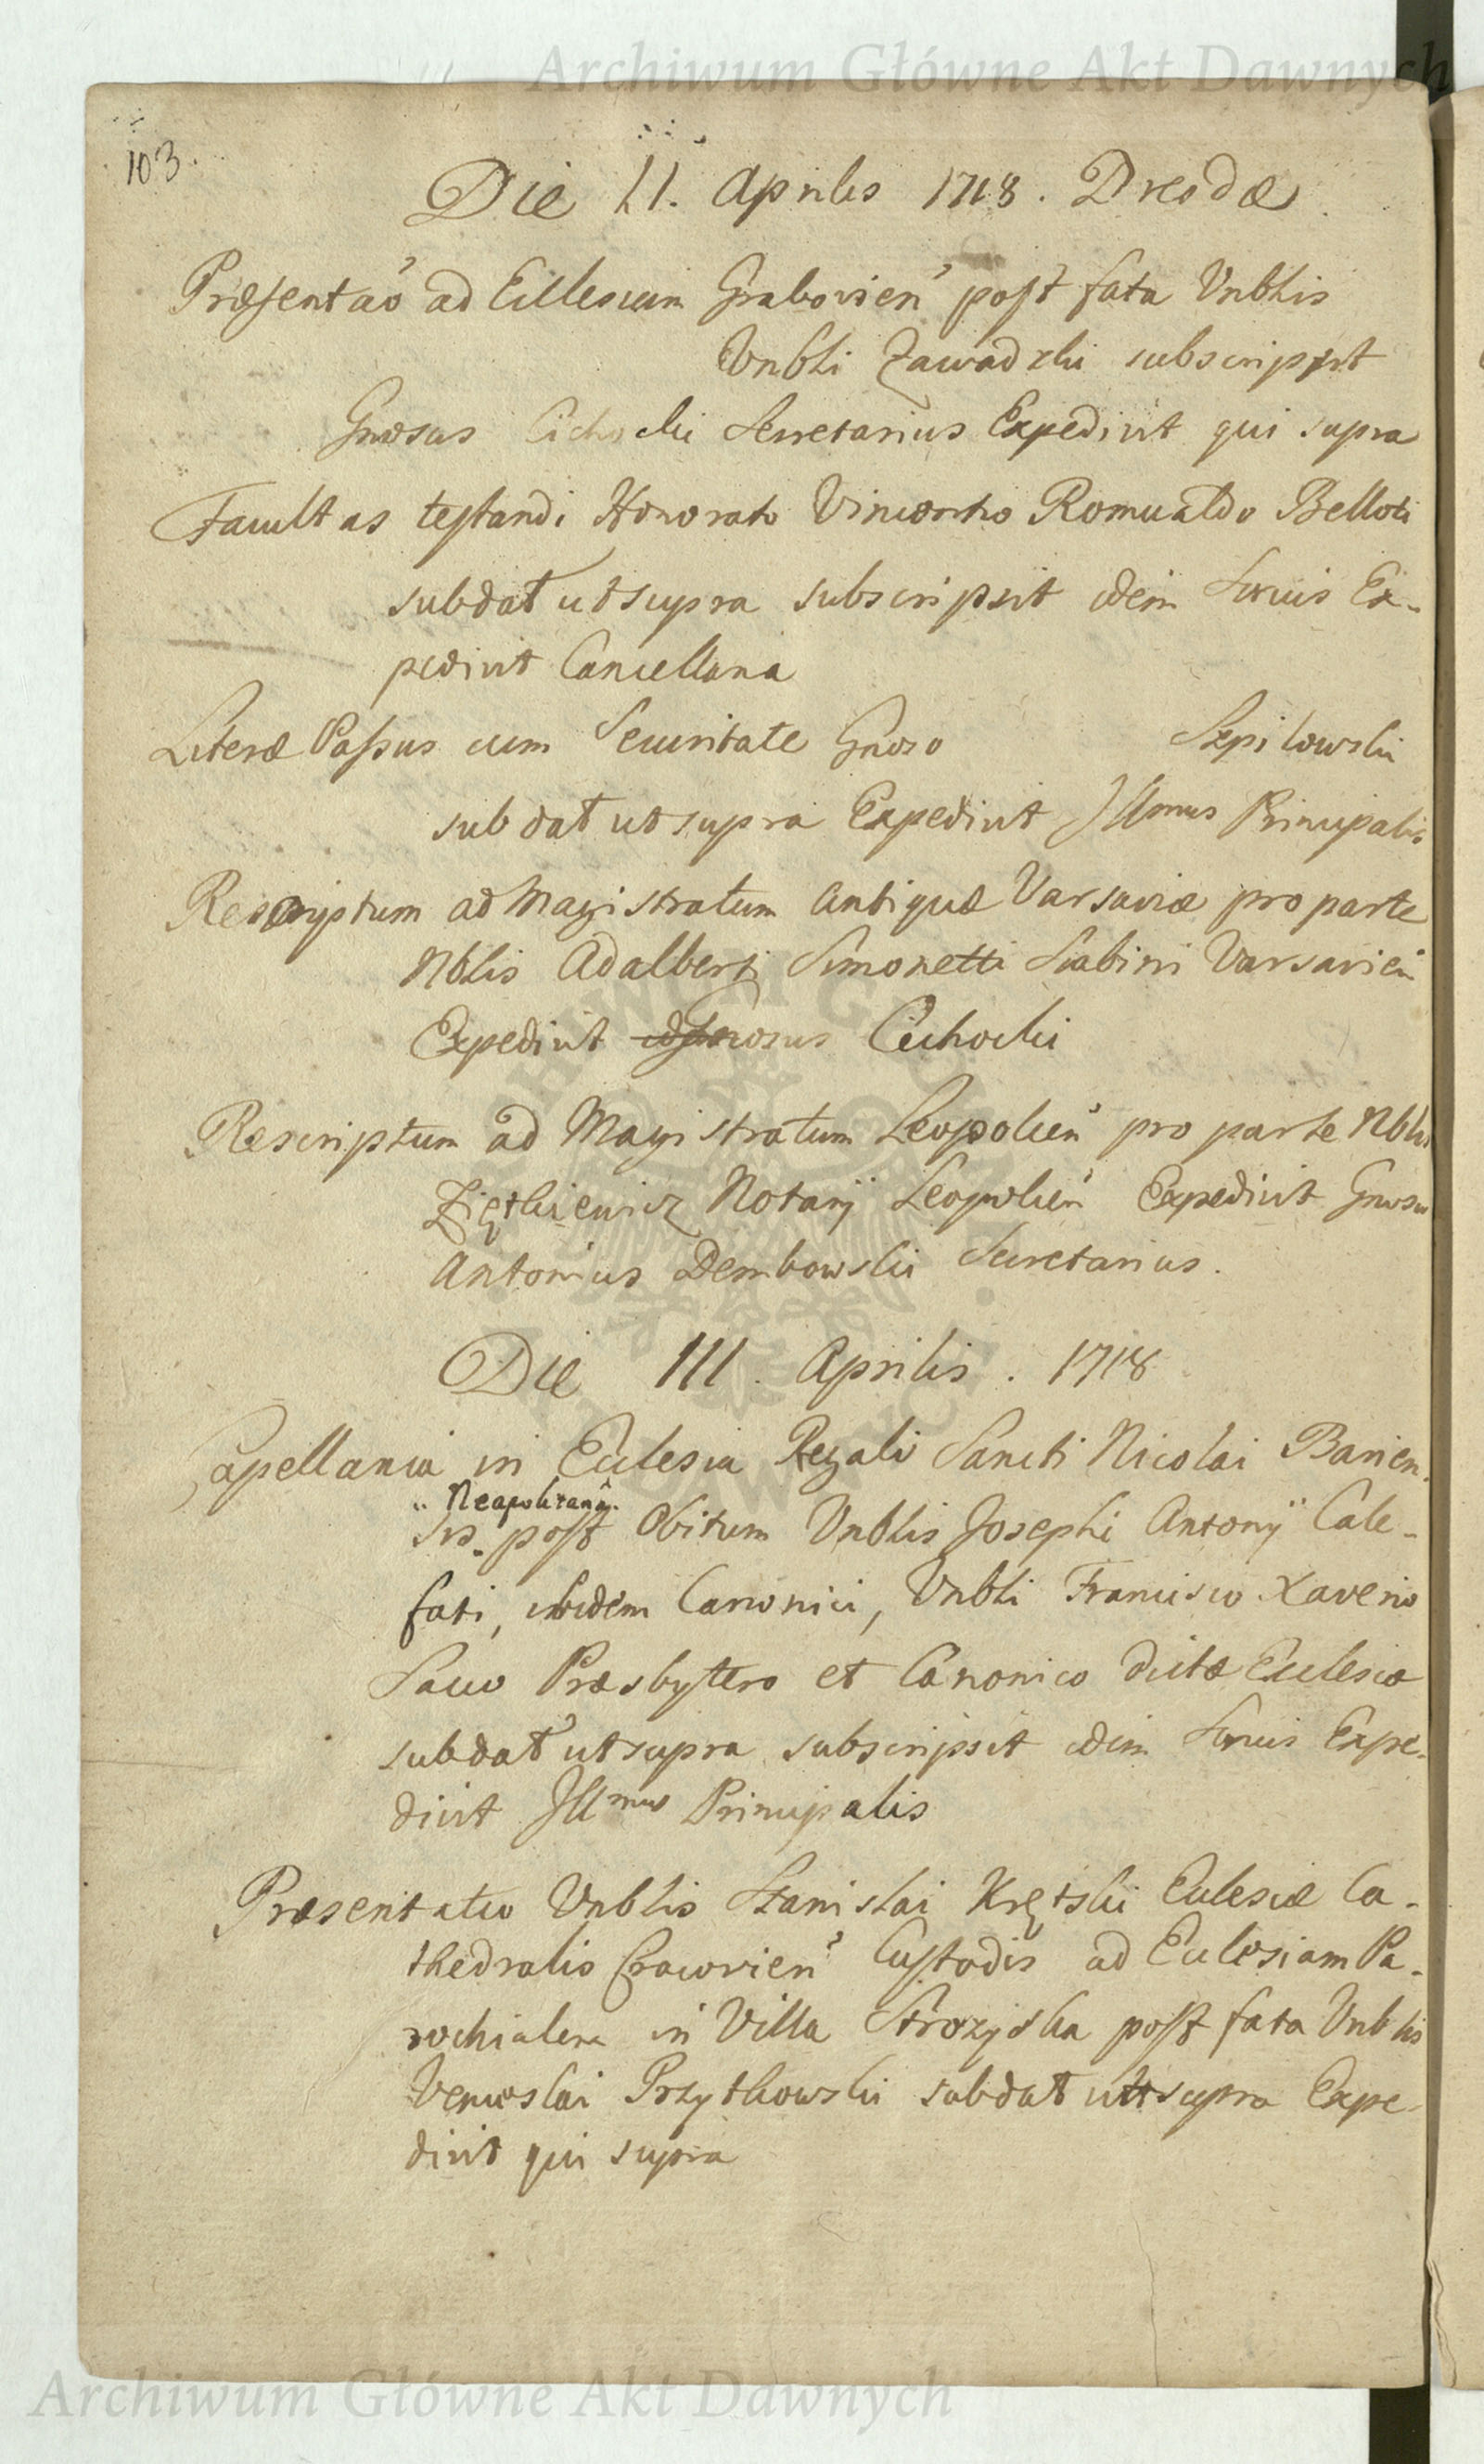 Archiwum Główne Akt Dawnych
103.
Die 11. Aprilis 1718. Dresdæ
Præsentao ad Ecclesiam Grabovien post fata Vnblis
Vnbli Zawadzki subscripsit
Gnosus Cichocki Secretarius Expedivit qui supra
Facultas testandi Honorato Vincentio Romualdo Belloti
subdat ut supra subscripsit idem Srnus Ex-
pedivit Cancellaria
Literæ Passus cum Securitate Gnoso Szpilowski
sub dat ut supra Expedivit Illmus Principalis
Rescriptum ad Magistratum Antiquæ Varsaviæ pro parte
Nblis Adalberti Simonetti Scabini Varsavien
Expedivit Gnosus Cichocki
Rescriptum ad Magistratum Leopolien pro parte Nblis
Ziętkiewicz Notarij Leopolien Expedivit Gnosus
Antonius Dembowski Secretarius.
Die 111. Aprilis. 1718
Capellania in Ecclesia Regali Sancti Nicolai Barien-
Neapolitana.
sis. post Obitum Vnblis Josephi Antonij Cale-
fati, ibidem Canonici, Vnbli Francisco Xaverio
Sacco Præsbytero et Canonico dictæ Ecclesiæ
subdat ut supra subscripsit idem Srnus Expe-
divit Illmus Principalis
Præsentatio Vnblis Stanislai Krętski Eclesiæ Ca-
thedralis Cracovien Custodis ad Eclesiam Pa-
rochialem in Villa Strozyska post fata Vnblis
Venceslai Przytkowski subdat ut supra Expe-
divit qui supra
Archiwum Główne Akt Dawnych